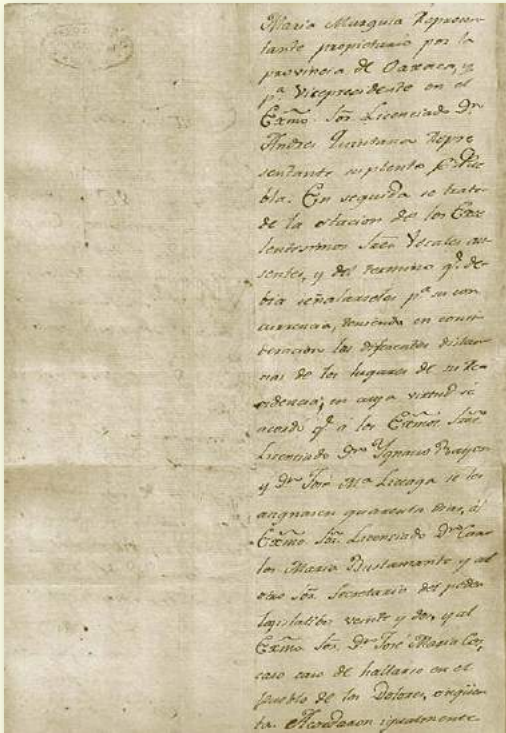 Maria Murguia Represen-
tante propietario por la
provincia de Oaxaca, y
pª Vicepresidente en el
Exmô. Sor. Licenciado Dn
Andres Quintana Repre
sentante suplente pr Pue
bla. En seguida se trató
de la citacion de los Exce
lentisimos Sres Vocales au
sentes, y del termino qe. de-
bia señalarseles pª su con
currencia, teniendo en consi-
deracion las diferentes distan
cias de los lugares de su re
sidencia; en cuya virtud se
acordó qe. á los Exmôs. Sres
Licenciado Dn Ygnacio Rayon
y Dn José Mª Liceaga se les
asignasen quarenta dias, al
Exmô. Sor. Licenciado Dn Car
los Maria Bustamante y al
otro Sor. Secretario del poder
legislatibo veinte y dos, y al
Exmô. Sor. Dr José Maria Cos,
caso de hallarse en el
pueblo de los Dolores, cinqüen
ta. Acordaron igualmente